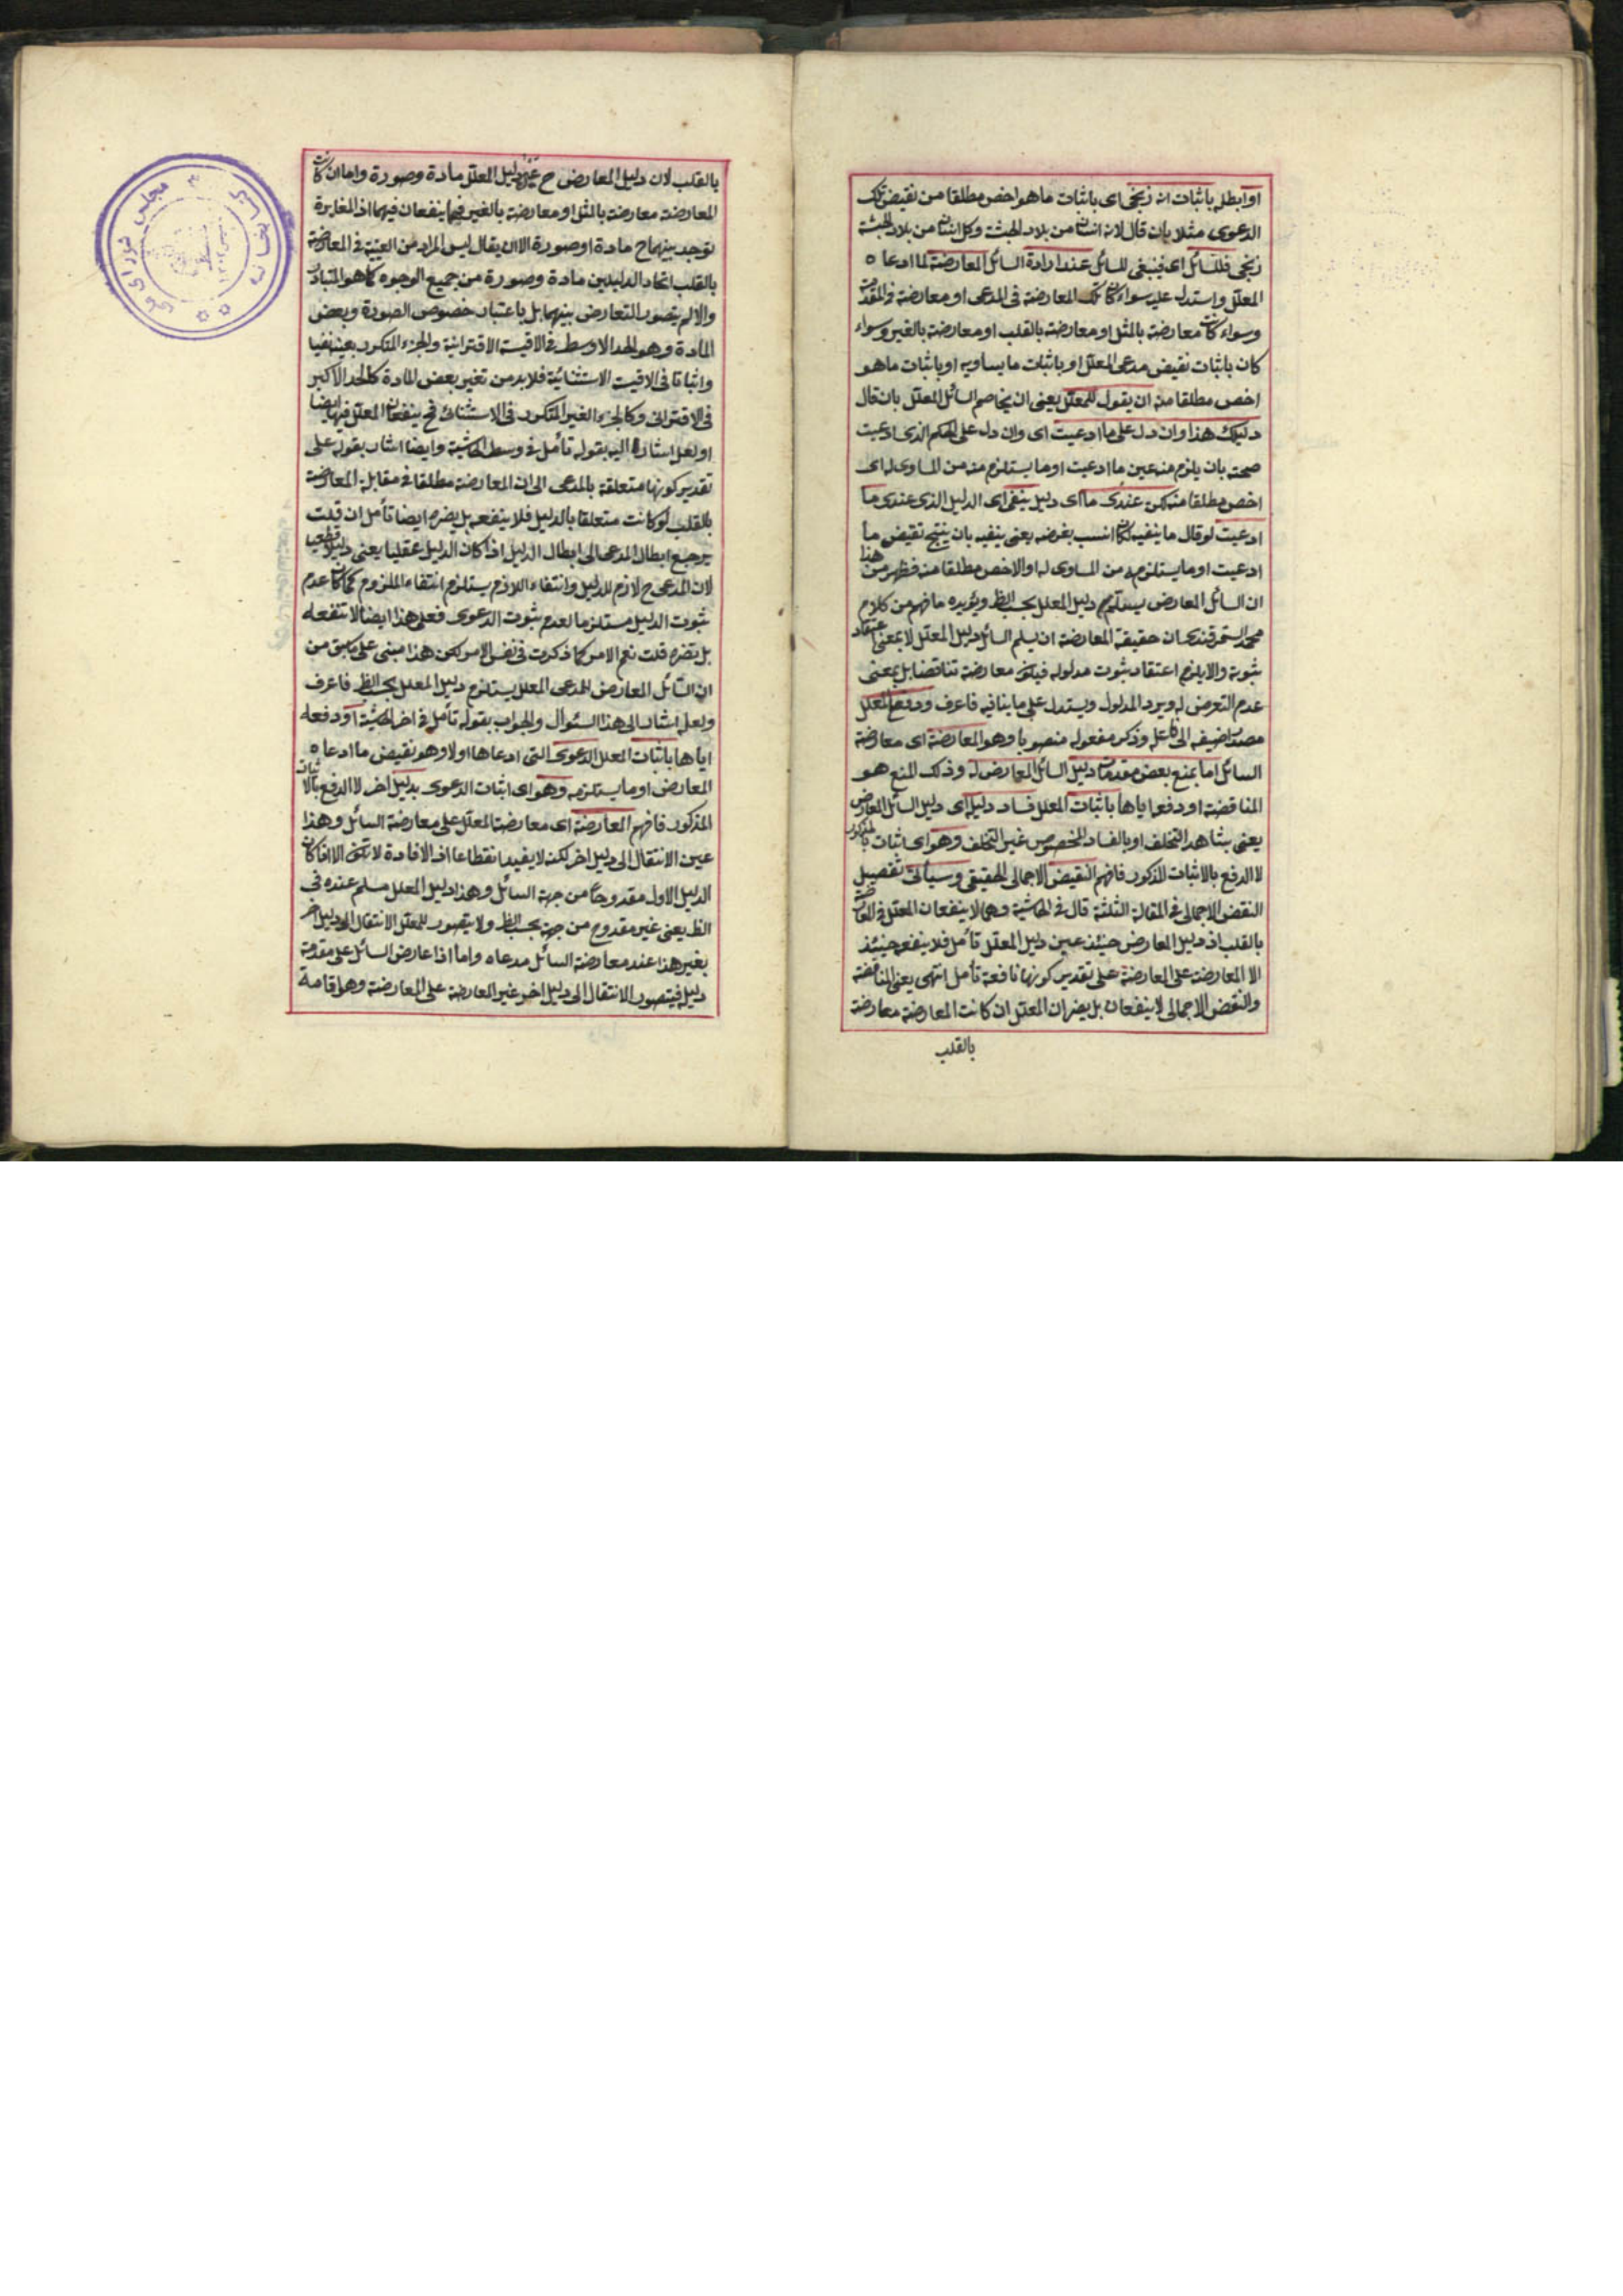 او ابطله باثبات انه زنجى اى باثبات ما هو اخص مطلقا من نقيض تلك
الدعوى مثلا بان قال لانه انسان من بلاد الحبشة وكل انسان من بلاد الحبشة
زنجى فللسائل اى فينبغى للسائل عند ارادة السائل المعارضة لما ادعاه
المعلل واستدل عليه سواء كان تلك المعارضة فى المدعى او معارضة فى المقدمة
وسواء كانت معارضة بالمثل او معارضة بالقلب او معارضة بالغير وسواء
كان باثبات نقيض مدعى المعلل او باثبات ما يساويه او باثبات ما هو
اخص مطلقا منه ان يقول للمعلل يعنى ان يخاصم السائل المعلل بان قال
دليلك هذا وان دل على ما ادعيت اى وان دل على الحكم الذى ادعيت
صحته بان يلزم منه عين ما ادعيت او ما يستلزم منه من المساوى له اى
اخص مطلقا منه لكن عندى ما اى دليل ينفى اى الدليل الذى عندى ما
ادعيت لو قال ما ينفيه لكان انسب بغرضه يعنى ينفيه بان ينتج نقيض ما
ادعيت او ما يستلزمه من المساوى له او الاخص مطلقا منه فظهر من هذا
ان السائل المعارض دليل المعلل بحسب الظ ويؤيده ما فهم من كلام
محمد السمرقندى ان حقيقة المعارضة ان يسلم السائل دليل المعلل لا بمعنى اعتقاد
ثبوته والا يلزم اعتقاد ثبوت مدلوله فيكون معارضة تناقضا بل بمعنى
عدم التعرض له ويرد المدلول ويستدل على ما ينافيه فاعرف ودفع المعلل
مصدر اضيف الى فاعله وذكر مفعوله منصوبا وهو المعارضة اى معارضة
السائل اما بمنع بعض مقدمات دليل السائل المعارض له وذلك المنع هو
المناقضة او دفعه اياها باثبات المعلل فساد دليله اى دليل السائل المعارض
يعنى بشاهد التخلف او بالفساد المخصوص غير التخلف وهو اى اثبات بالمذكور
لا الدفع بالاثبات المذكور فافهم النقيض الاجمالى الحقيقى وسيأتى تفصيل
النقض الاجمالى فى المقالة الثلثة قال فى الحاشية وهما لا ينفعان المعلل فى المعارضة
بالقلب اذ دليل المعارض حينئذ عين دليل المعلل تأمل فلا ينفعه حينئذ
الا المعارضة على المعارضة على تقدير كونها نافعة تأمل انتهى يعنى المناقضة
والنقض الاجمالى لا ينفعان بل يضران المعلل ان كانت المعارضة معارضة
بالقلب
بالقلب لان دليل المعارض ح عين دليل المعلل مادة وصورة واما ان كانت
المعارضة معارضة بالمثل او معارضة بالغير فهما ينفعان فيهما اذ المغايرة
توجد بينهما ح مادة او صورة الا ان يقال ليس المراد من العينية فى المعارضة
بالقلب اتحاد الدليلين مادة وصورة من جميع الوجوه كما هو المتبادر
والا لم يتصور التعارض بينهما بل باعتبار خصوص الصورة وبعض
المادة وهو الحد الاوسط فى الاقيسة الاقترانية والجزء المتكرر بعينه نفيا
واثباتا فى الاقيسة الاستثنائية فلا بد من تغير بعض المادة كالحد الاكبر
فى الاقترانى وكالجزء الغير المتكرر فى الاستثنائى فح ينفعان المعلل فيها ايضا
او لعل اشاره اليه بقوله تأمل فى وسط الحاشية وايضا اشار بقوله على
تقدير كونها متعلقة بالمدعى الى ان المعارضة مطلقا فى مقابلة المعارضة
بالقلب لو كانت متعلقا بالدليل فلا ينفعه بل يضره ايضا تأمل ان قلت
يرجع ابطال المدعى الى ابطال الدليل اذا كان الدليل عقليا يعنى دليلا قطعيا
لان المدعى ح لازم للدليل وانتفاء اللازم يستلزم انتفاء الملزوم كما كان عدم
ثبوت الدليل مستلزما لعدم ثبوت الدعوى فعلى هذا ايضا لا تنفعه
بل تضره قلت نعم الامر كما ذكرت فى نفس الامر لكن هذا مبنى على ما سبق من
ان السائل المعارض للمدعى المعلل يستلزم دليل المعلل بحسب الظ فاعرف
ولعل اشار الى هذا السئوال والجواب بقوله تأمل فى اخر الحاشية او دفعه
اياها باثبات المعلل الدعوى التى ادعاها اولا وهو نقيض ما ادعاه
المعارض او ما يستلزمه وهو اى اثبات الدعوى بدليل اخر لا الدفع بالاثبات
المذكور فافهم المعارضة اى معارضة المعلل على معارضة السائل وهذا
عين الانتقال الى دليل اخر لكنه لا يفيد انقطاعا اذ الافادة لا تكون الا اذا كان
الدليل الاول مقدوحا من جهة السائل وهذا دليل المعلل مسلم عنده فى
الظ يعنى غير مقدوح من جهة بحسب الظ ولا يتصور للمعلل الانتقال الى دليل اخر
بغير هذا عند معارضة السائل مدعاه واما اذا عارض السائل على مقدمة
دليله فيتصور الانتقال الى دليل اخر غير المعارضة على المعارضة وهو اقامة
مجلس شوراى ملى